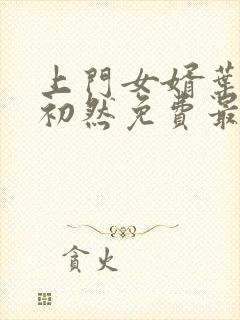 上門女婿葉
初然免費最
貪火